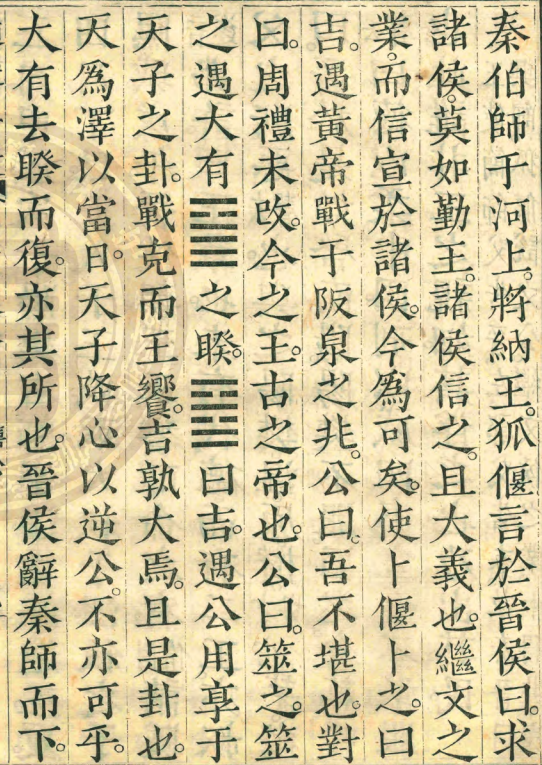 秦伯師于河上。將納王。狐偃言於晉侯曰。求
諸侯。莫如勤王。諸侯信之。且大義也。繼文之
業。而信宣於諸侯。今爲可矣。使卜偃卜之。曰
吉。遇黃帝戰于阪泉之兆。公曰。吾不堪也。對
曰。周禮未改。今之王。古之帝也。公曰。筮之。筮
之遇大有䷍之睽。䷥曰吉。遇公用享于
天子之卦。戰克而王饗。吉孰大焉。且是卦也。
天爲澤以當日。天子降心以逆公。不亦可乎。
大有去睽而復。亦其所也。晉侯辭秦師而下。